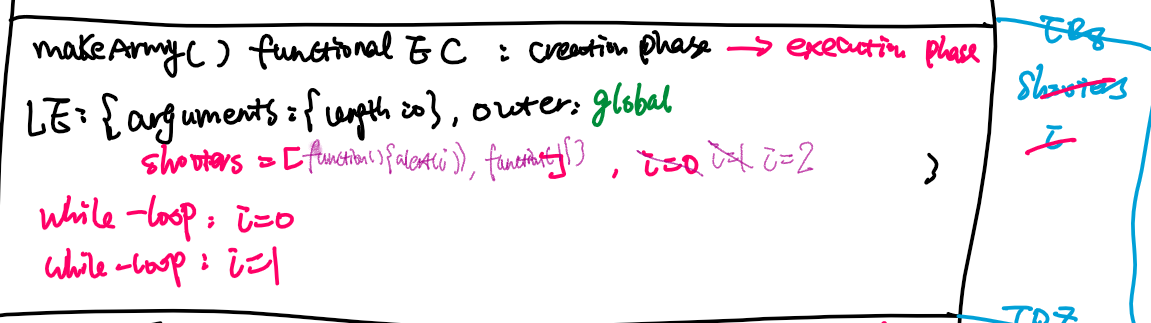 makeArmy() functional EC : creation phase → execution phase
LE: {arguments:{length:0}, outer: global
shooters = [function(){alert(i)}, function(){}] , i=0 i=1 i=2 }
while-loop: i=0
while-loop: i=1
TDZ
shooters
i
TDZ